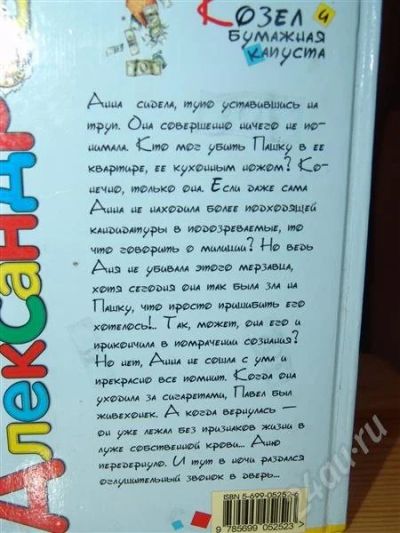 Козел и
бумажная
капуста
Анна сидела, тупо уставившись на
труп. Она совершенно ничего не по-
нимала. Кто мог убить Пашку в ее
квартире, ее кухонным ножом? Ко-
нечно, только она. Если даже сама
Анна не находила более подходящей
кандидатуры в подозреваемые, то
что говорить о милиции? Но ведь
Аня не убивала этого мерзавца,
хотя сегодня она так была зла на
Пашку, что просто пришибить его
хотелось!.. Так, может, она его и
прикончила в помрачении сознания?
Но нет, Анна не сошла с ума и
прекрасно все помнит. Когда она
уходила за сигаретами, Павел был
живехонек. А когда вернулась —
он уже лежал без признаков жизни в
луже собственной крови... Анну
передернуло. И тут в ночи раздался
оглушительный звонок в дверь...
Александр
ISBN 5-699-05252-6
9 785699 052523
24au.ru